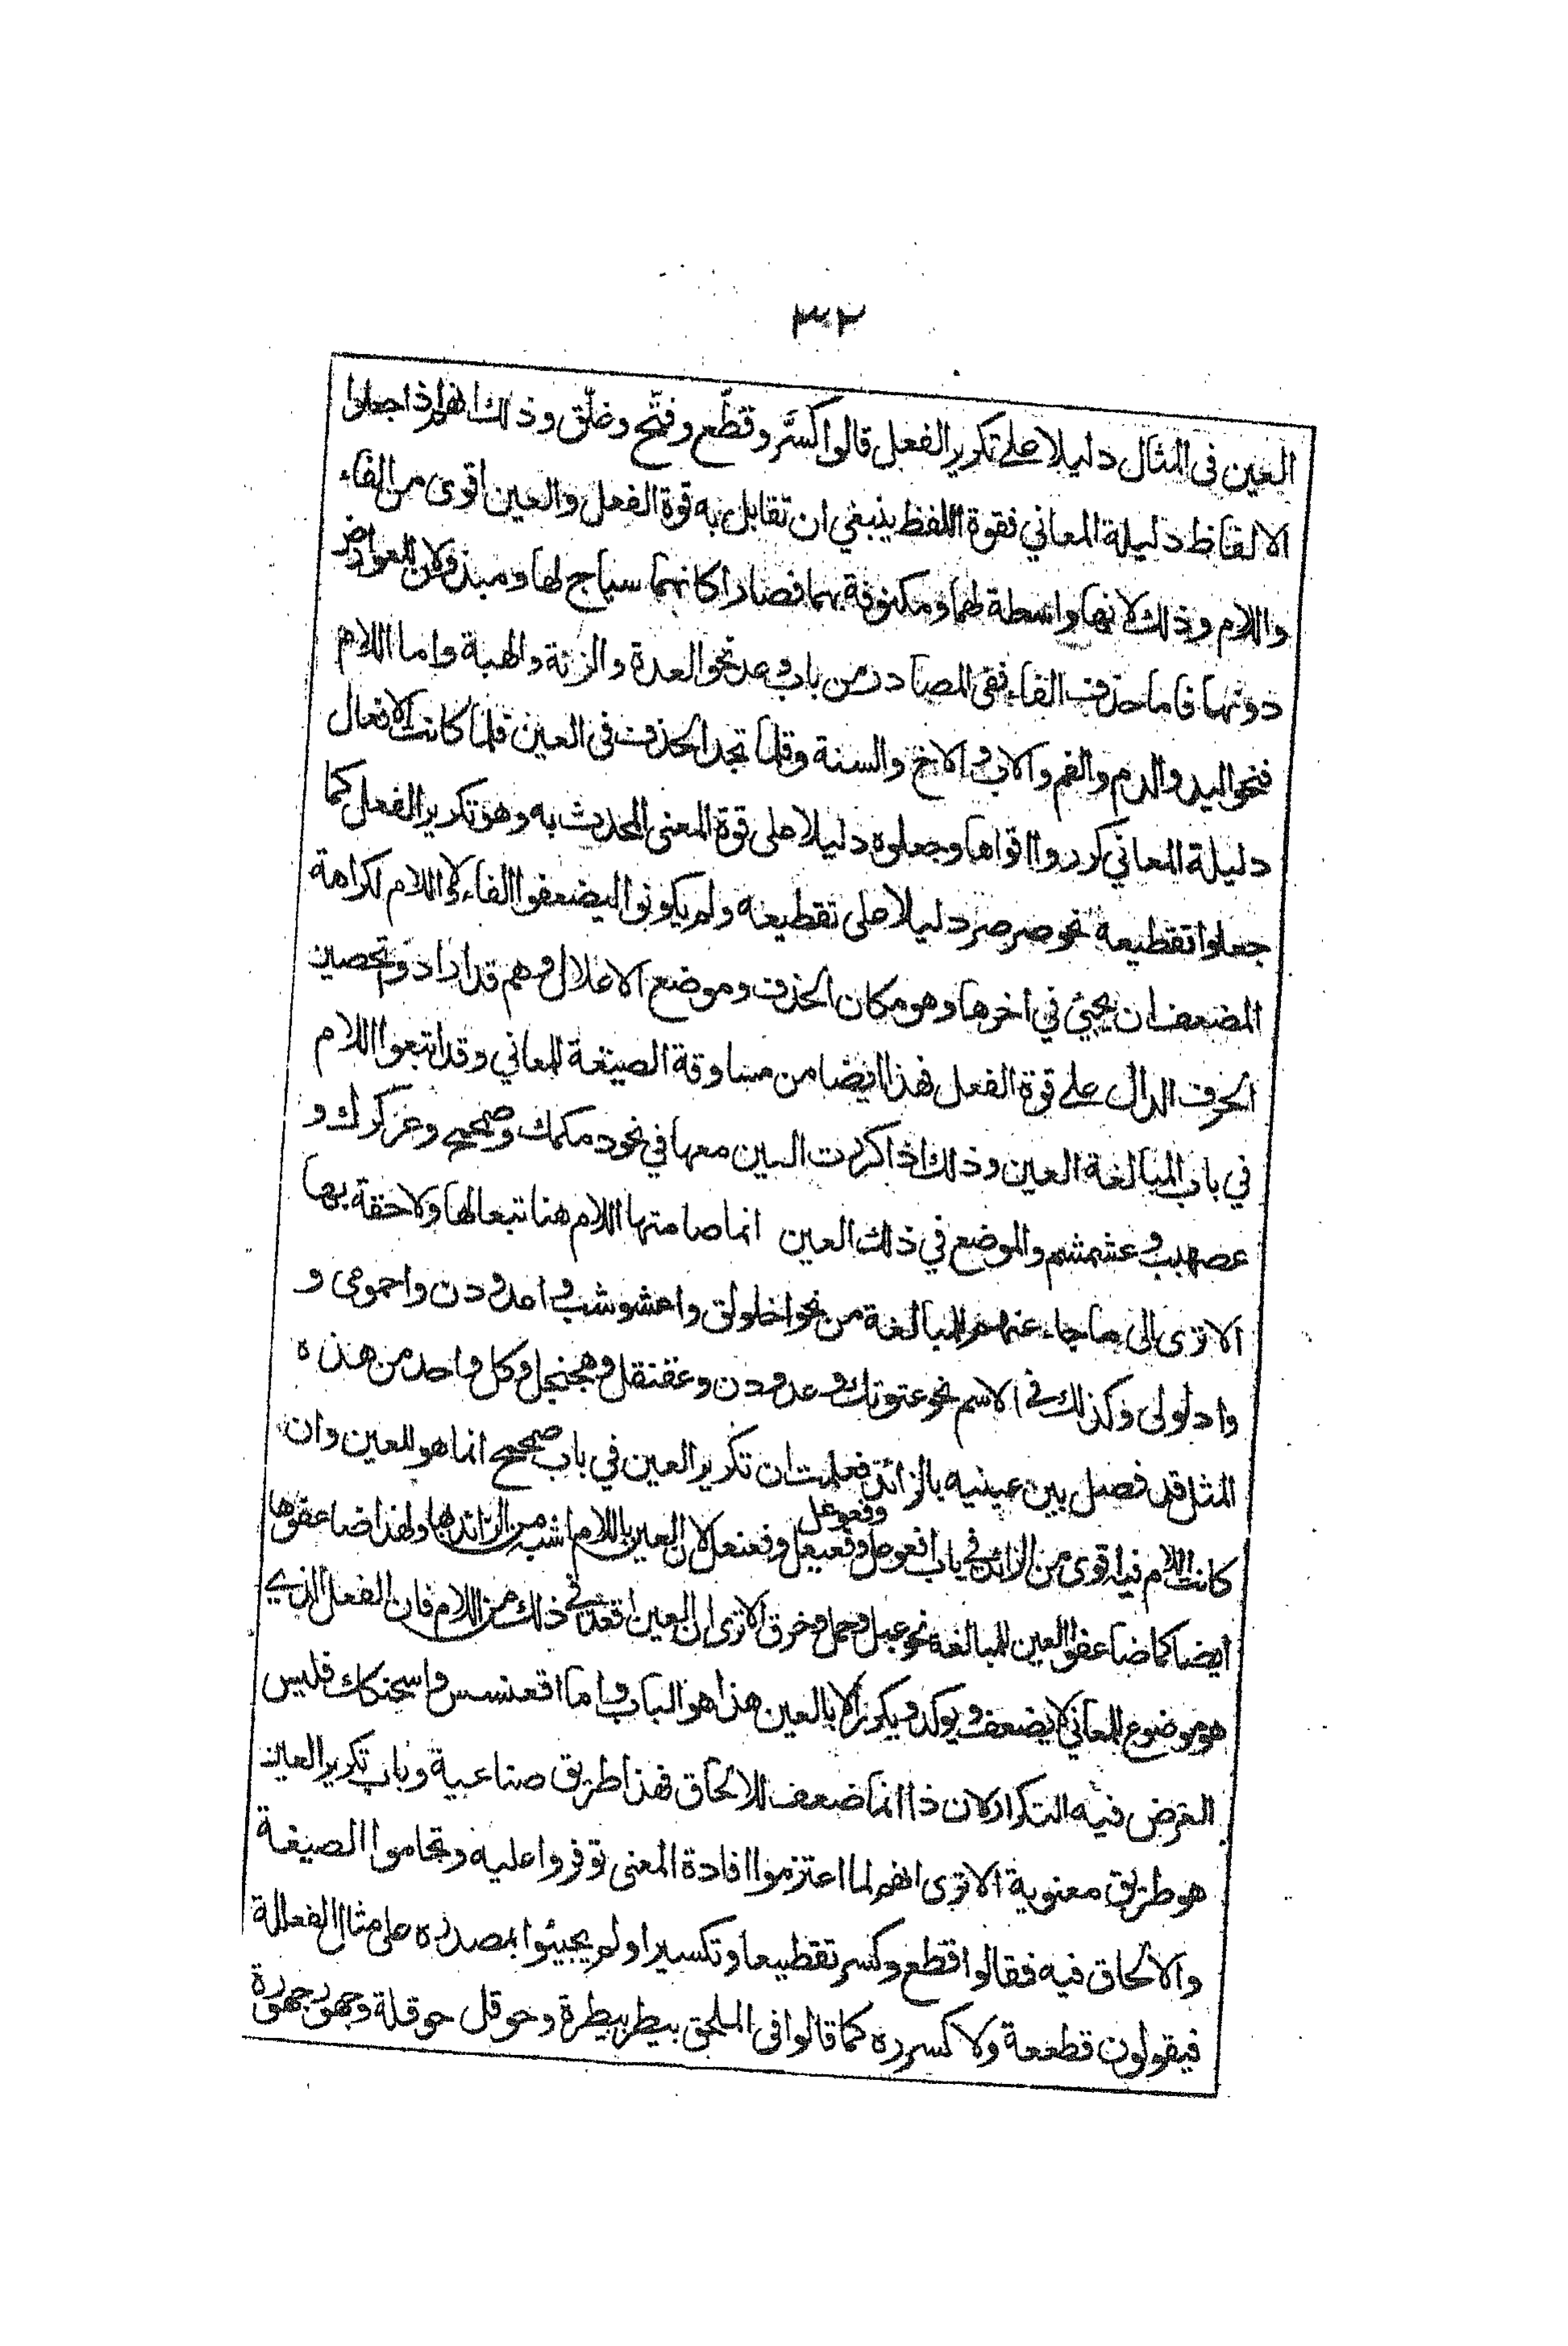 ٣٢
العين فى المثال دليلا على تكرير الفعل قالوا كسَّر وقطّع وفتّح وغلّق وذلك انهم اذا جعلوا
الالفاظ دليلة المعاني فقوة اللفظ ينبغي ان تقابل به قوة الفعل والعين اقوى من الفاء
واللام وذلك لانها واسطة لهما ومكنوفة بهما فصارا كانهما سياج لها ومبذولان للعوارض
دونها فاما حذف الفاء ففى المصادر من باب وعد نحو العدة والزنة والهبة واما اللام
فنحو اليد والدم والفم والاب والاخ والسنة وقلما تجد الحذف فى العين فلما كانت الافعال
دليلة المعاني كرروا اقواها وجعلوه دليلا على قوة المعنى المحدث به وهو تكرير الفعل كما
جعلوا تقطيعه نحو صرصر دليلا على تقطيعه ولم يكونوا ليضعفوا الفاء ولا اللام لكراهة
المضعف ان يجيئ في اخرها وهو مكان الحذف وموضع الاعلال وهم قد ارادوا تحصين
الحرف الدال على قوة الفعل فهذا ايضا من مساوقة الصيغة للمعاني وقد اتبعوا اللام
في باب المبالغة العين وذلك اذا كررت العين معها في نحو دمكمك وصمحمح وعركرك و
عصبصب وعشمشم والموضع في ذلك العين انما ضامتها اللام هنا تبعا لها ولاحقة بها
الا ترى الى ما جاء عنهم للمبالغة من نحو اخلولق واعشوشب واغدودن واحمومى و
وادلولى وكذلك في الاسم نحو عثوثل وغدودن وعقنقل وهجنجل وكل واحد من هذه
المثل قد فصل بين عينيه بالزائد فعلمت ان تكرير العين في باب صمحمح انما هو للعين وان
كانت اللام فيه اقوى من الزائد في باب افعوعل وفعيعل وفعوعل وفعنعل لان العين باللام اشبه من الزائد بها ولهذا ضاعفوها
ايضا كما ضاعفوا العين للمبالغة نحو عتل وحمل وخرق الا ترى ان العين اقعد في ذلك من اللام فان الفعل الذي
هو موضوع للمعاني لا يضعف ويوكد ويكرر الا بالعين هذا هو الباب واما اقعنسس واسحنكك فليس
الغرض فيه التكرار لان ذا انما ضعف للالحاق فهذا طريق صناعية وباب تكرير العين
هو طريق معنوية الا ترى انهم لما اعتزموا افادة المعنى توفروا عليه وتحاموا الصيغة
والالحاق فيه فقالوا قطع وكسر تقطيعا وتكسيرا ولم يجيئوا بمصدره على مثال الفعللة
فيقولون قطععة ولا كسررة كما قالوا فى الملحق بيطر بيطرة وحوقل حوقلة وجهور جهورة